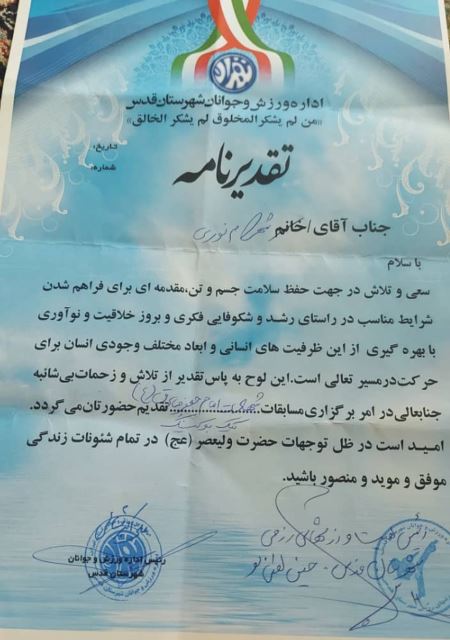 اداره ورزش و جوانان شهرستان قدس
«من لم یشکر المخلوق لم یشکر الخالق»
تاریخ:
شماره:
تقدیرنامه
جناب آقای / خانم شهرام نوری
با سلام
سعی و تلاش در جهت حفظ سلامت جسم و تن،مقدمه ای برای فراهم شدن
شرایط مناسب در راستای رشد و شکوفایی فکری و بروز خلاقیت و نوآوری
با بهره گیری از این ظرفیت های انسانی و ابعاد مختلف وجودی انسان برای
حرکت درمسیر تعالی است.این لوح به پاس تقدیر از تلاش و زحمات بی‌شائبه
جنابعالی در امر برگزاری مسابقات تقدیم حضورتان می گردد.
امیـد است در ظل توجهات حضرت ولیعصر (عج) در تمام شئونات زندگی
موفق و موید و منصور باشید.
رئیس اداره ورزش و جوانان
شهرستان قدس
رئیس هیئت ورزشهای رزمی
شهرستان قدس